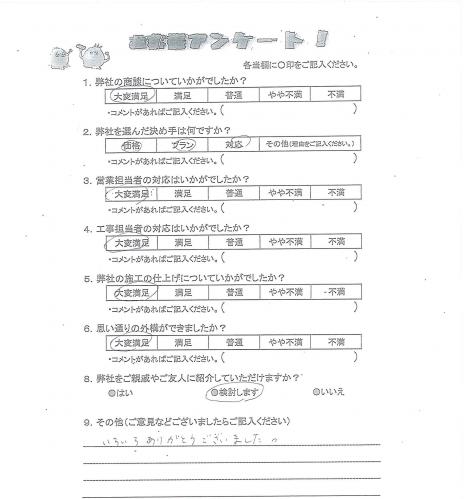 お客様アンケート！
各当欄に〇印をご記入ください。
1. 弊社の商談についていかがでしたか？
大変満足 満足 普通 やや不満 不満
・コメントがあればご記入ください。（ ）
2. 弊社を選んだ決め手は何ですか？
価格 プラン 対応 その他（理由をご記入ください。）
・コメントがあればご記入ください。（ ）
3. 営業担当者の対応はいかがでしたか？
大変満足 満足 普通 やや不満 不満
・コメントがあればご記入ください。（ ）
4. 工事担当者の対応はいかがでしたか？
大変満足 満足 普通 やや不満 不満
・コメントがあればご記入ください。（ ）
5. 弊社の施工の仕上げについていかがでしたか？
大変満足 満足 普通 やや不満 不満
・コメントがあればご記入ください。（ ）
6. 思い通りの外構ができましたか？
大変満足 満足 普通 やや不満 不満
・コメントがあればご記入ください。（ ）
8. 弊社をご親戚やご友人に紹介していただけますか？
◎はい ◎検討します ◎いいえ
9. その他（ご意見などございましたらご記入ください）
いろいろありがとうございました。